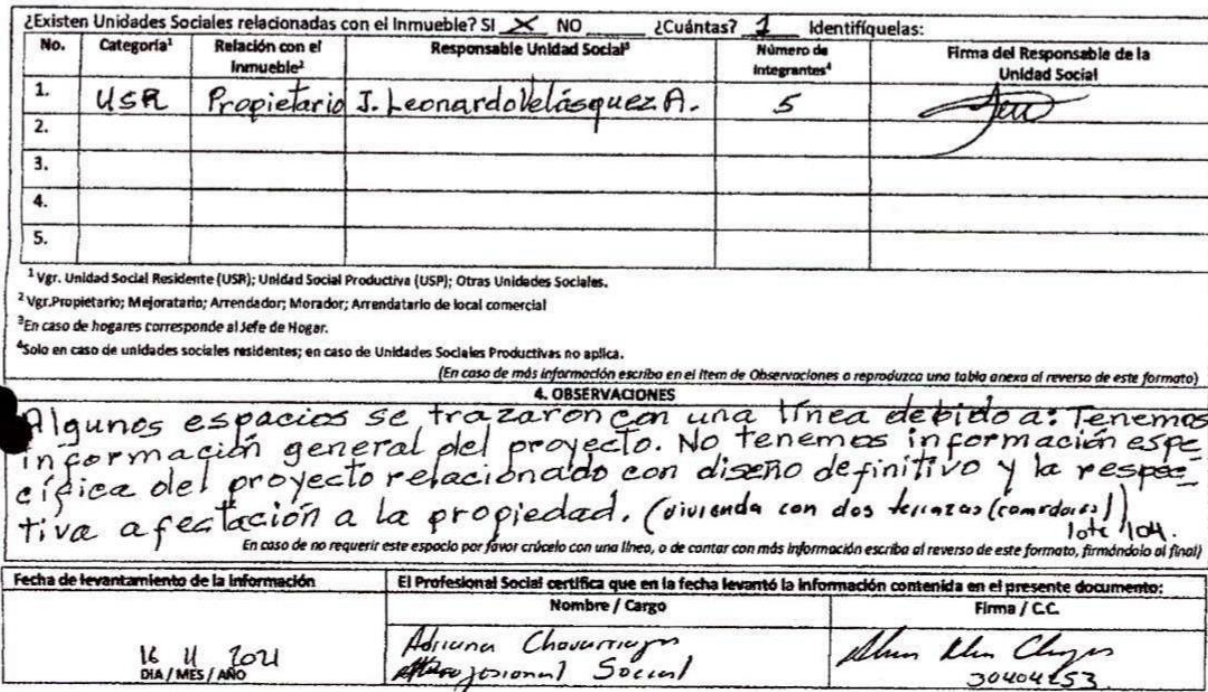 ¿Existen Unidades Sociales relacionadas con el Inmueble? SI X NO ____ ¿Cuántas? 1 Identifíquelas:
No. Categoría¹ Relación con el Inmueble² Responsable Unidad Social³ Número de integrantes⁴ Firma del Responsable de la Unidad Social
1. USR Propietario J. Leonardo Velásquez A. 5
2.
3.
4.
5.
¹ Vgr. Unidad Social Residente (USR); Unidad Social Productiva (USP); Otras Unidades Sociales.
² Vgr.Propietario; Mejoratario; Arrendador; Morador; Arrendatario de local comercial
³En caso de hogares corresponde al Jefe de Hogar.
⁴Solo en caso de unidades sociales residentes; en caso de Unidades Sociales Productivas no aplica.
(En caso de más información escriba en el Item de Observaciones o reproduzca una tabla anexa al reverso de este formato)
4. OBSERVACIONES
Algunos espacios se trazaron con una línea debido a: Tenemos
información general del proyecto. No tenemos información espe
cífica del proyecto relacionado con diseño definitivo y la respec_
tiva afectación a la propiedad. (vivienda con dos terrazas (comedores))
lote 104.
En caso de no requerir este espacio por favor crúcelo con una línea, o de contar con más información escriba al reverso de este formato, firmándolo al final)
Fecha de levantamiento de la información El Profesional Social certifica que en la fecha levantó la información contenida en el presente documento:
Nombre / Cargo Firma / C.C.
16 11 2021 Adriana Chavarriaga
DIA / MES / AÑO Profesional Social 30404253